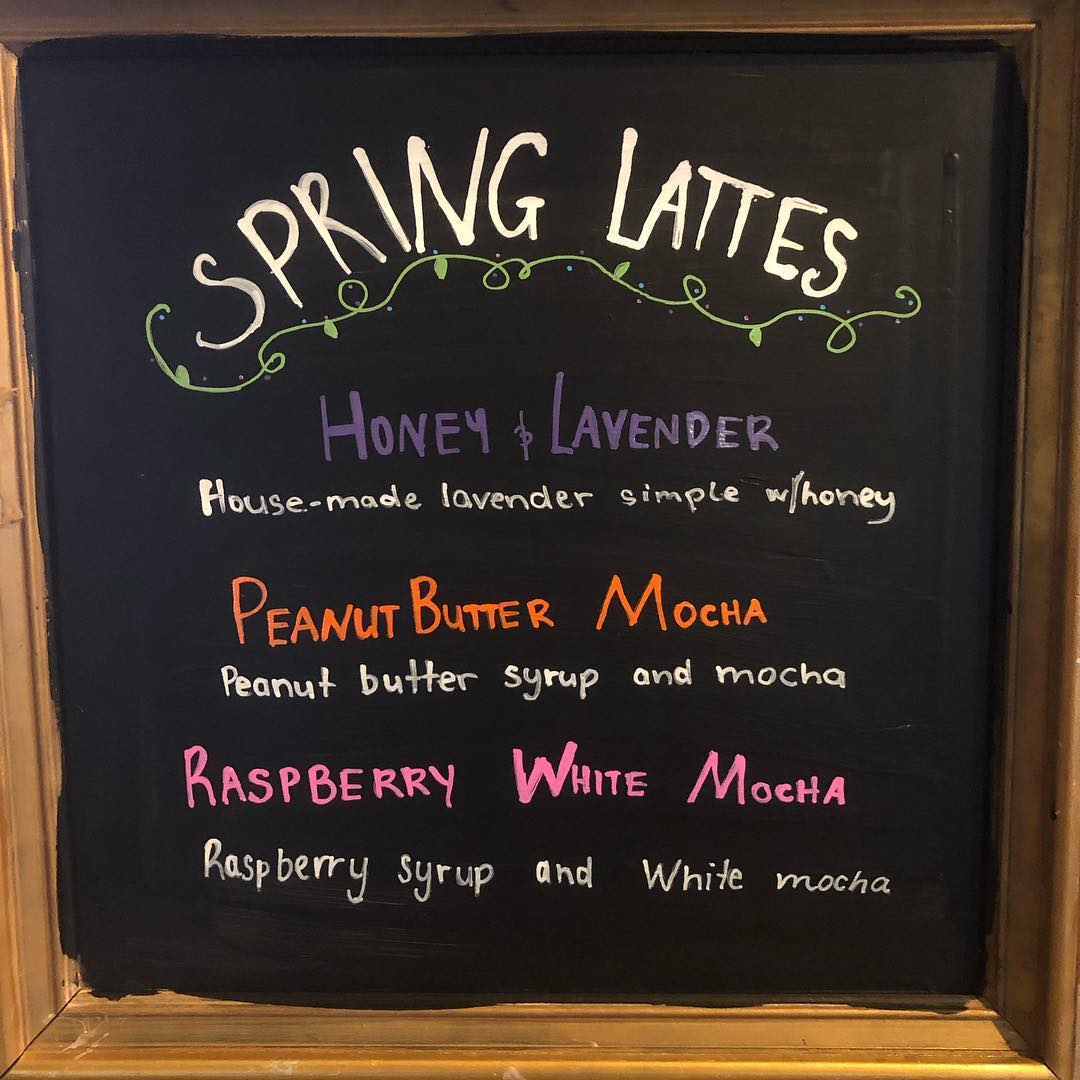 SPRING LATTES
HONEY & LAVENDER
House-made lavender simple w/honey
PEANUT BUTTER MOCHA
Peanut butter syrup and mocha
RASPBERRY WHITE MOCHA
Raspberry syrup and White mocha